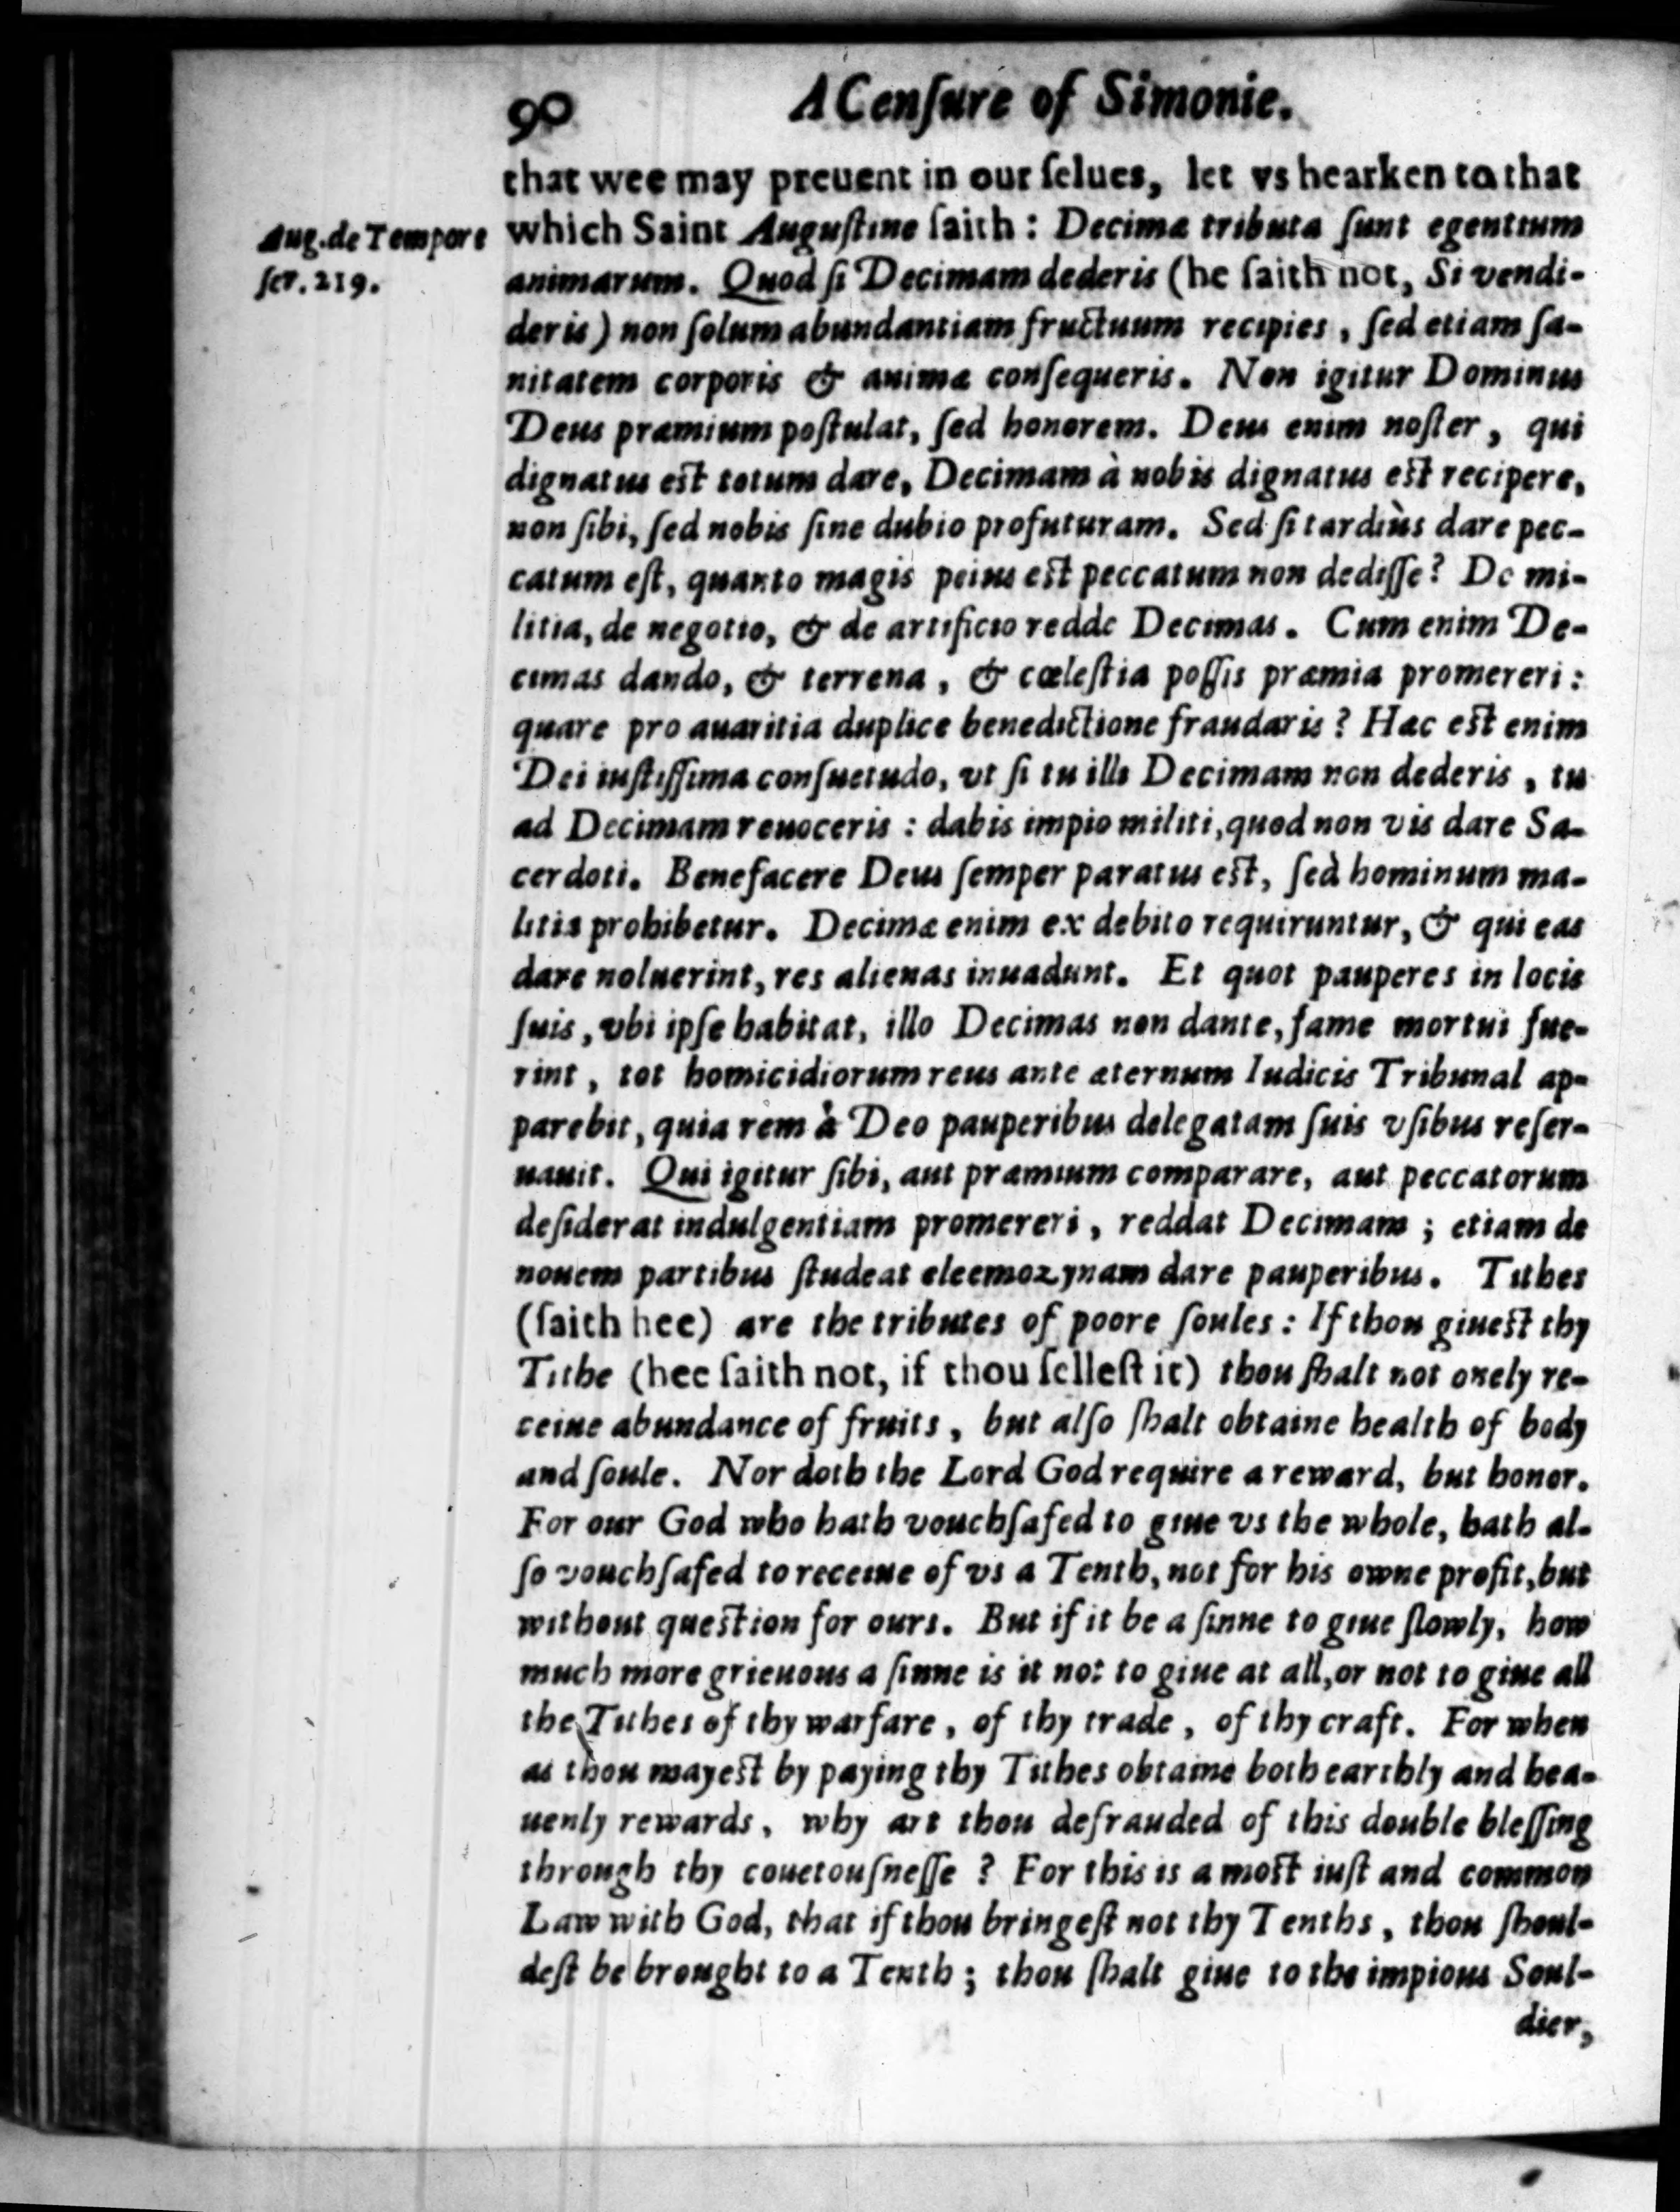 90 A Cenſure of Simonie.
that wee may preuent in our ſelues, let vs hearken to that
Aug. de Tempore
ſer. 219.
which Saint Auguſtine ſaith: Decimæ tributa ſunt egentium
animarum. Quod ſi Decimam dederis (he ſaith not, Si vendi-
deris) non ſolum abundantiam fructuum recipies, ſed etiam ſa-
nitatem corporis & animæ conſequeris. Non igitur Dominus
Deus præmium poſtulat, ſed honorem. Deus enim noſter, qui
dignatus eſt totum dare, Decimam à nobis dignatus eſt recipere,
non ſibi, ſed nobis ſine dubio profuturam. Sed ſi tardiùs dare pec-
catum eſt, quanto magis peius eſt peccatum non dediſſe? De mi-
litia, de negotio, & de artificio redde Decimas. Cum enim De-
cimas dando, & terrena, & cœleſtia poſſis præmia promereri:
quare pro auaritia duplice benedictione fraudaris? Hæc eſt enim
Dei iuſtiſſima conſuetudo, vt ſi tu illi Decimam non dederis, tu
ad Decimam reuoceris: dabis impio militi, quod non vis dare Sa-
cerdoti. Benefacere Deus ſemper paratus eſt, ſed hominum ma-
litia prohibetur. Decimæ enim ex debito requiruntur, & qui eas
dare noluerint, res alienas inuadunt. Et quot pauperes in locis
ſuis, vbi ipſe habitat, illo Decimas non dante, fame mortui fue-
rint, tot homicidiorum reus ante æternum Iudicis Tribunal ap-
parebit, quia rem à Deo pauperibus delegatam ſuis vſibus reſer-
uauit. Qui igitur ſibi, aut præmium comparare, aut peccatorum
deſiderat indulgentiam promereri, reddat Decimam; etiam de
nouem partibus ſtudeat eleemozynam dare pauperibus. Tithes
(ſaith hee) are the tributes of poore ſoules: If thou giueſt thy
Tithe (hee ſaith not, if thou ſelleſt it) thou ſhalt not onely re-
ceiue abundance of fruits, but alſo ſhalt obtaine health of body
and ſoule. Nor doth the Lord God require a reward, but honor.
For our God who hath vouchſafed to giue vs the whole, hath al-
ſo vouchſafed to receiue of vs a Tenth, not for his owne profit, but
without queſtion for ours. But if it be a ſinne to giue ſlowly, how
much more grieuous a ſinne is it not to giue at all, or not to giue all
the Tithes of thy warfare, of thy trade, of thy craft. For when
as thou mayeſt by paying thy Tithes obtaine both earthly and hea-
uenly rewards, why art thou defrauded of this double bleſſing
through thy couetouſneſſe? For this is a moſt iuſt and common
Law with God, that if thou bringeſt not thy Tenths, thou ſhoul-
deſt be brought to a Tenth; thou ſhalt giue to the impious Soul-
dier,